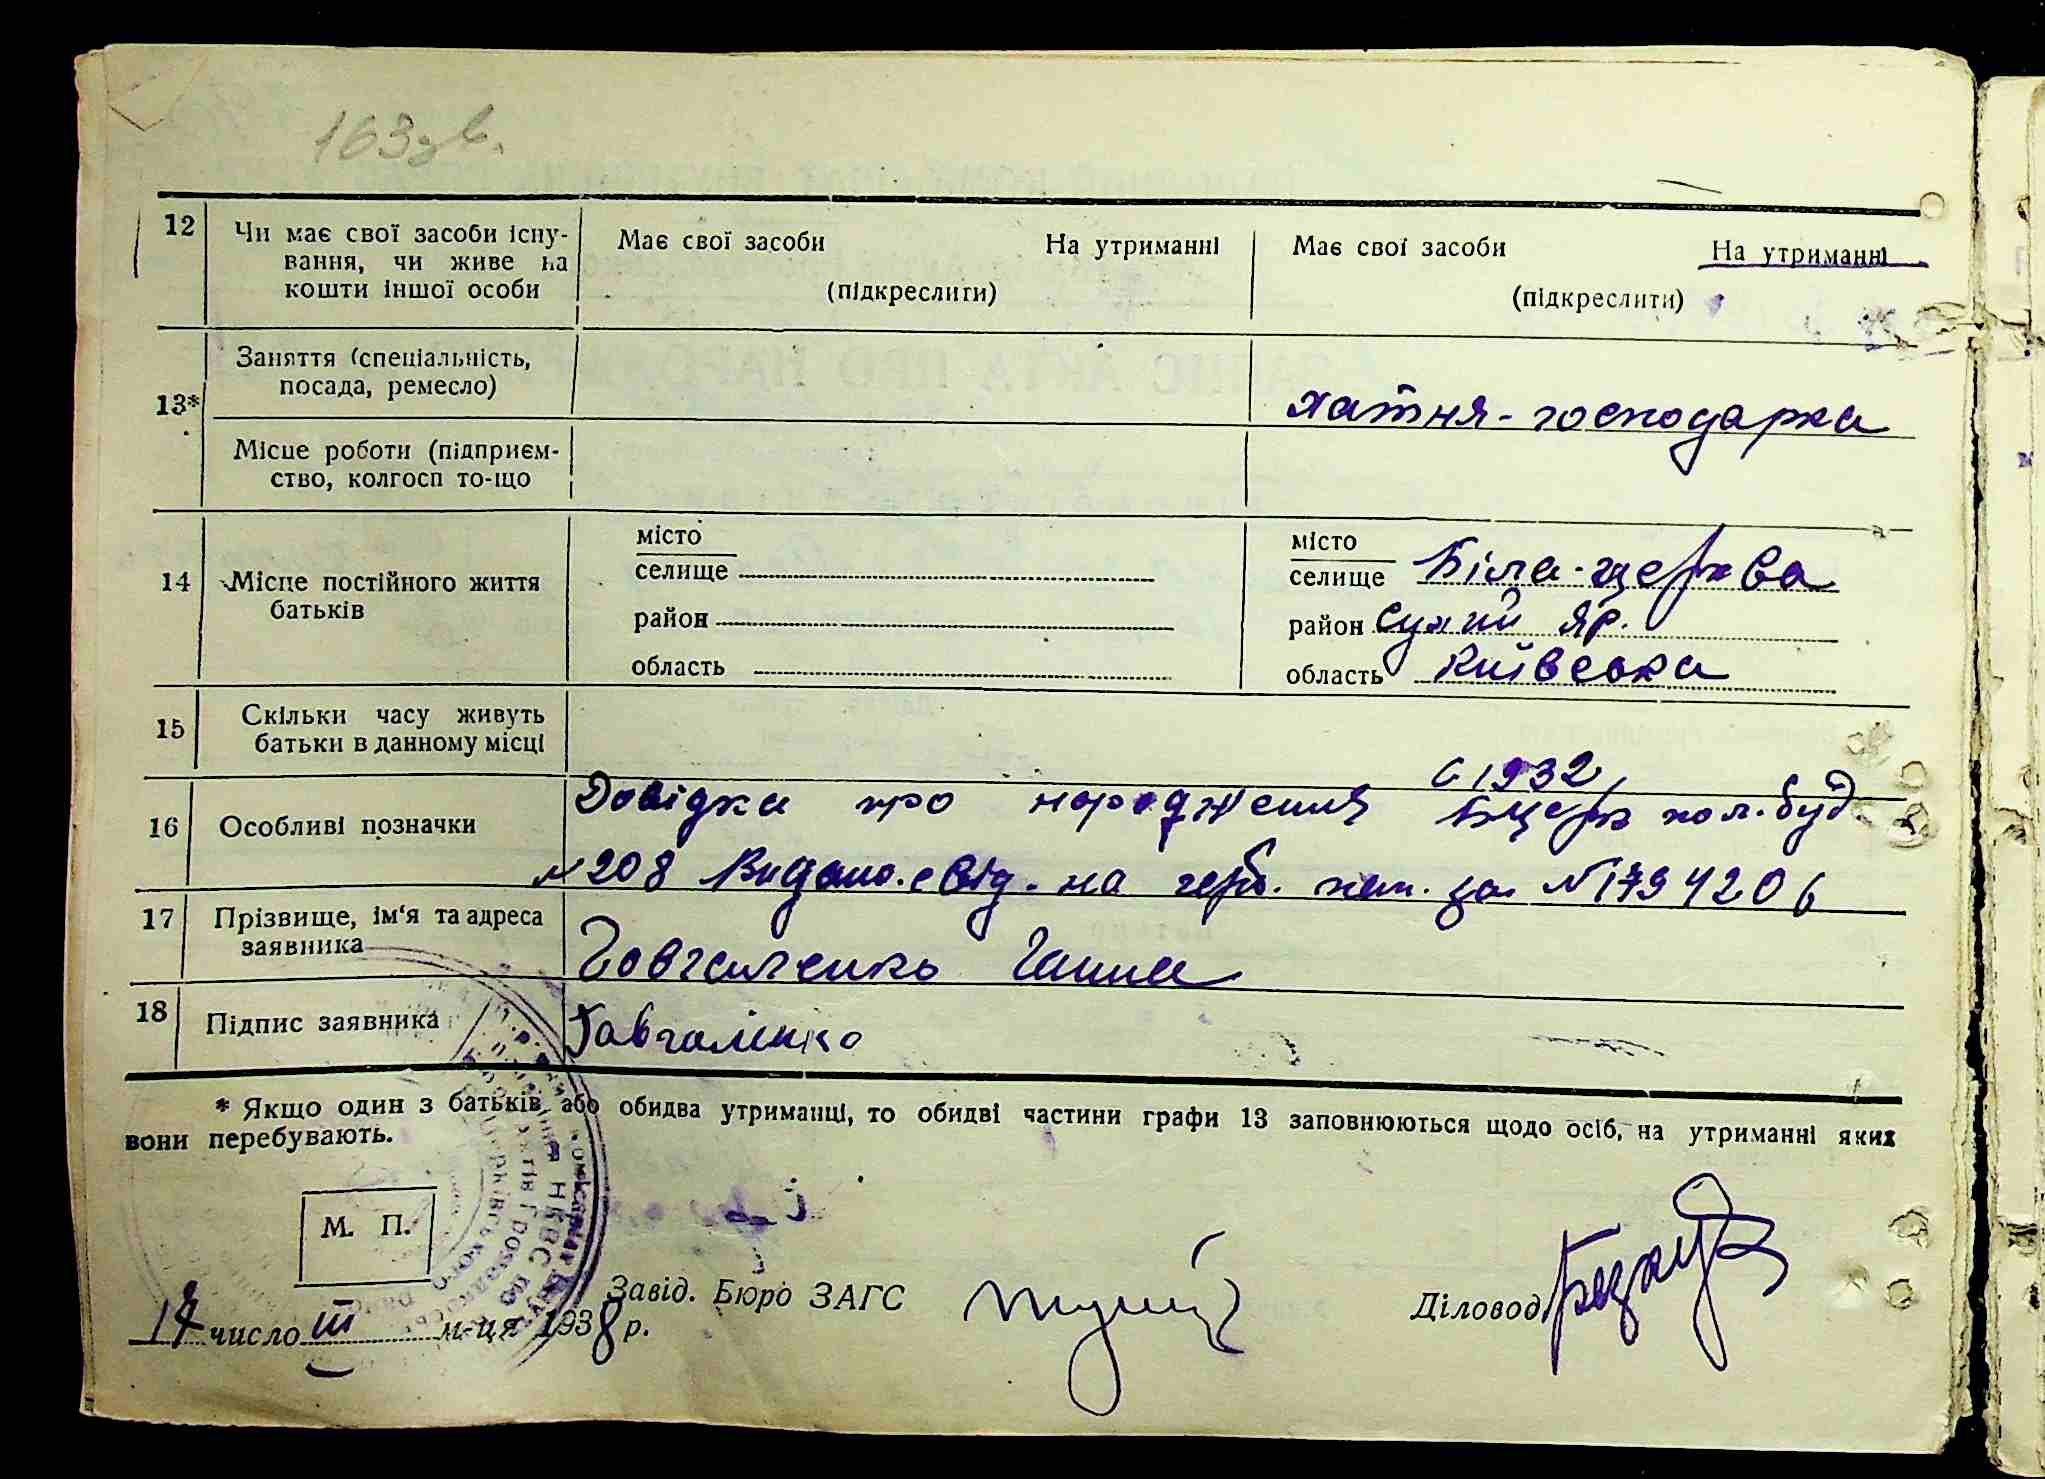 163 зв.
12 Чи має свої засоби існу-
вання, чи живе на
кошти іншої особи
Має свої засоби На утриманні
(підкреслити)
Має свої засоби На утриманні
(підкреслити)
13*
Заняття (спеціальність,
посада, ремесло)
хатня-господарка
Місце роботи (підприєм-
ство, колгосп то-що
14 Місце постійного життя
батьків
місто
селище
район
область
місто
селище Біла-церква
район Сухий яр.
область Київська
15 Скільки часу живуть
батьки в данному місці
с 1932
16 Особливі позначки
Довідка про народження Бцерк пол. буд.
№ 208 Видано. свід. на герб. пап. за №
17 Прізвище, ім'я та адреса
заявника
Говгаленко Ганна
18 Підпис заявника
Гавгаленко
* Якщо один з батьків, або обидва утриманці, то обидві частини графи 13 заповнюються щодо осіб, на утриманні яких
вони перебувають.
М. П.
Завід. Бюро ЗАГС
Діловод
число III м-ця 1938 р.